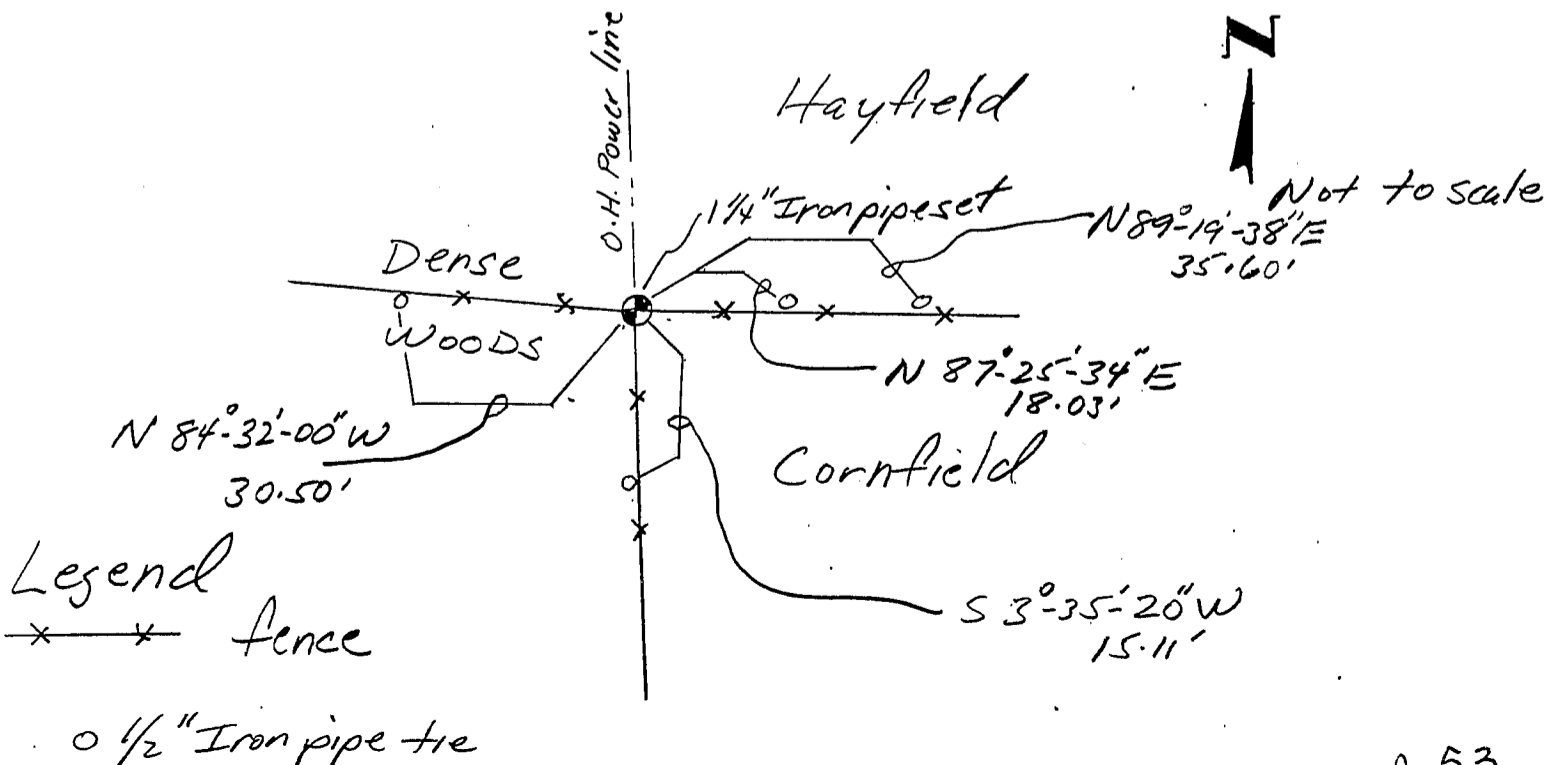 N
O.H. Power line
Hayfield
Not to scale
1 1/4" Iron pipe set
N 89°-19'-38" E
35.60'
Dense
WOODS
N 87°-25'-34" E
18.03'
N 84°-32'-00" W
30.50'
Cornfield
Legend
fence
S 3°-35'-20" W
15.11'
o 1/2" Iron pipe tie
53